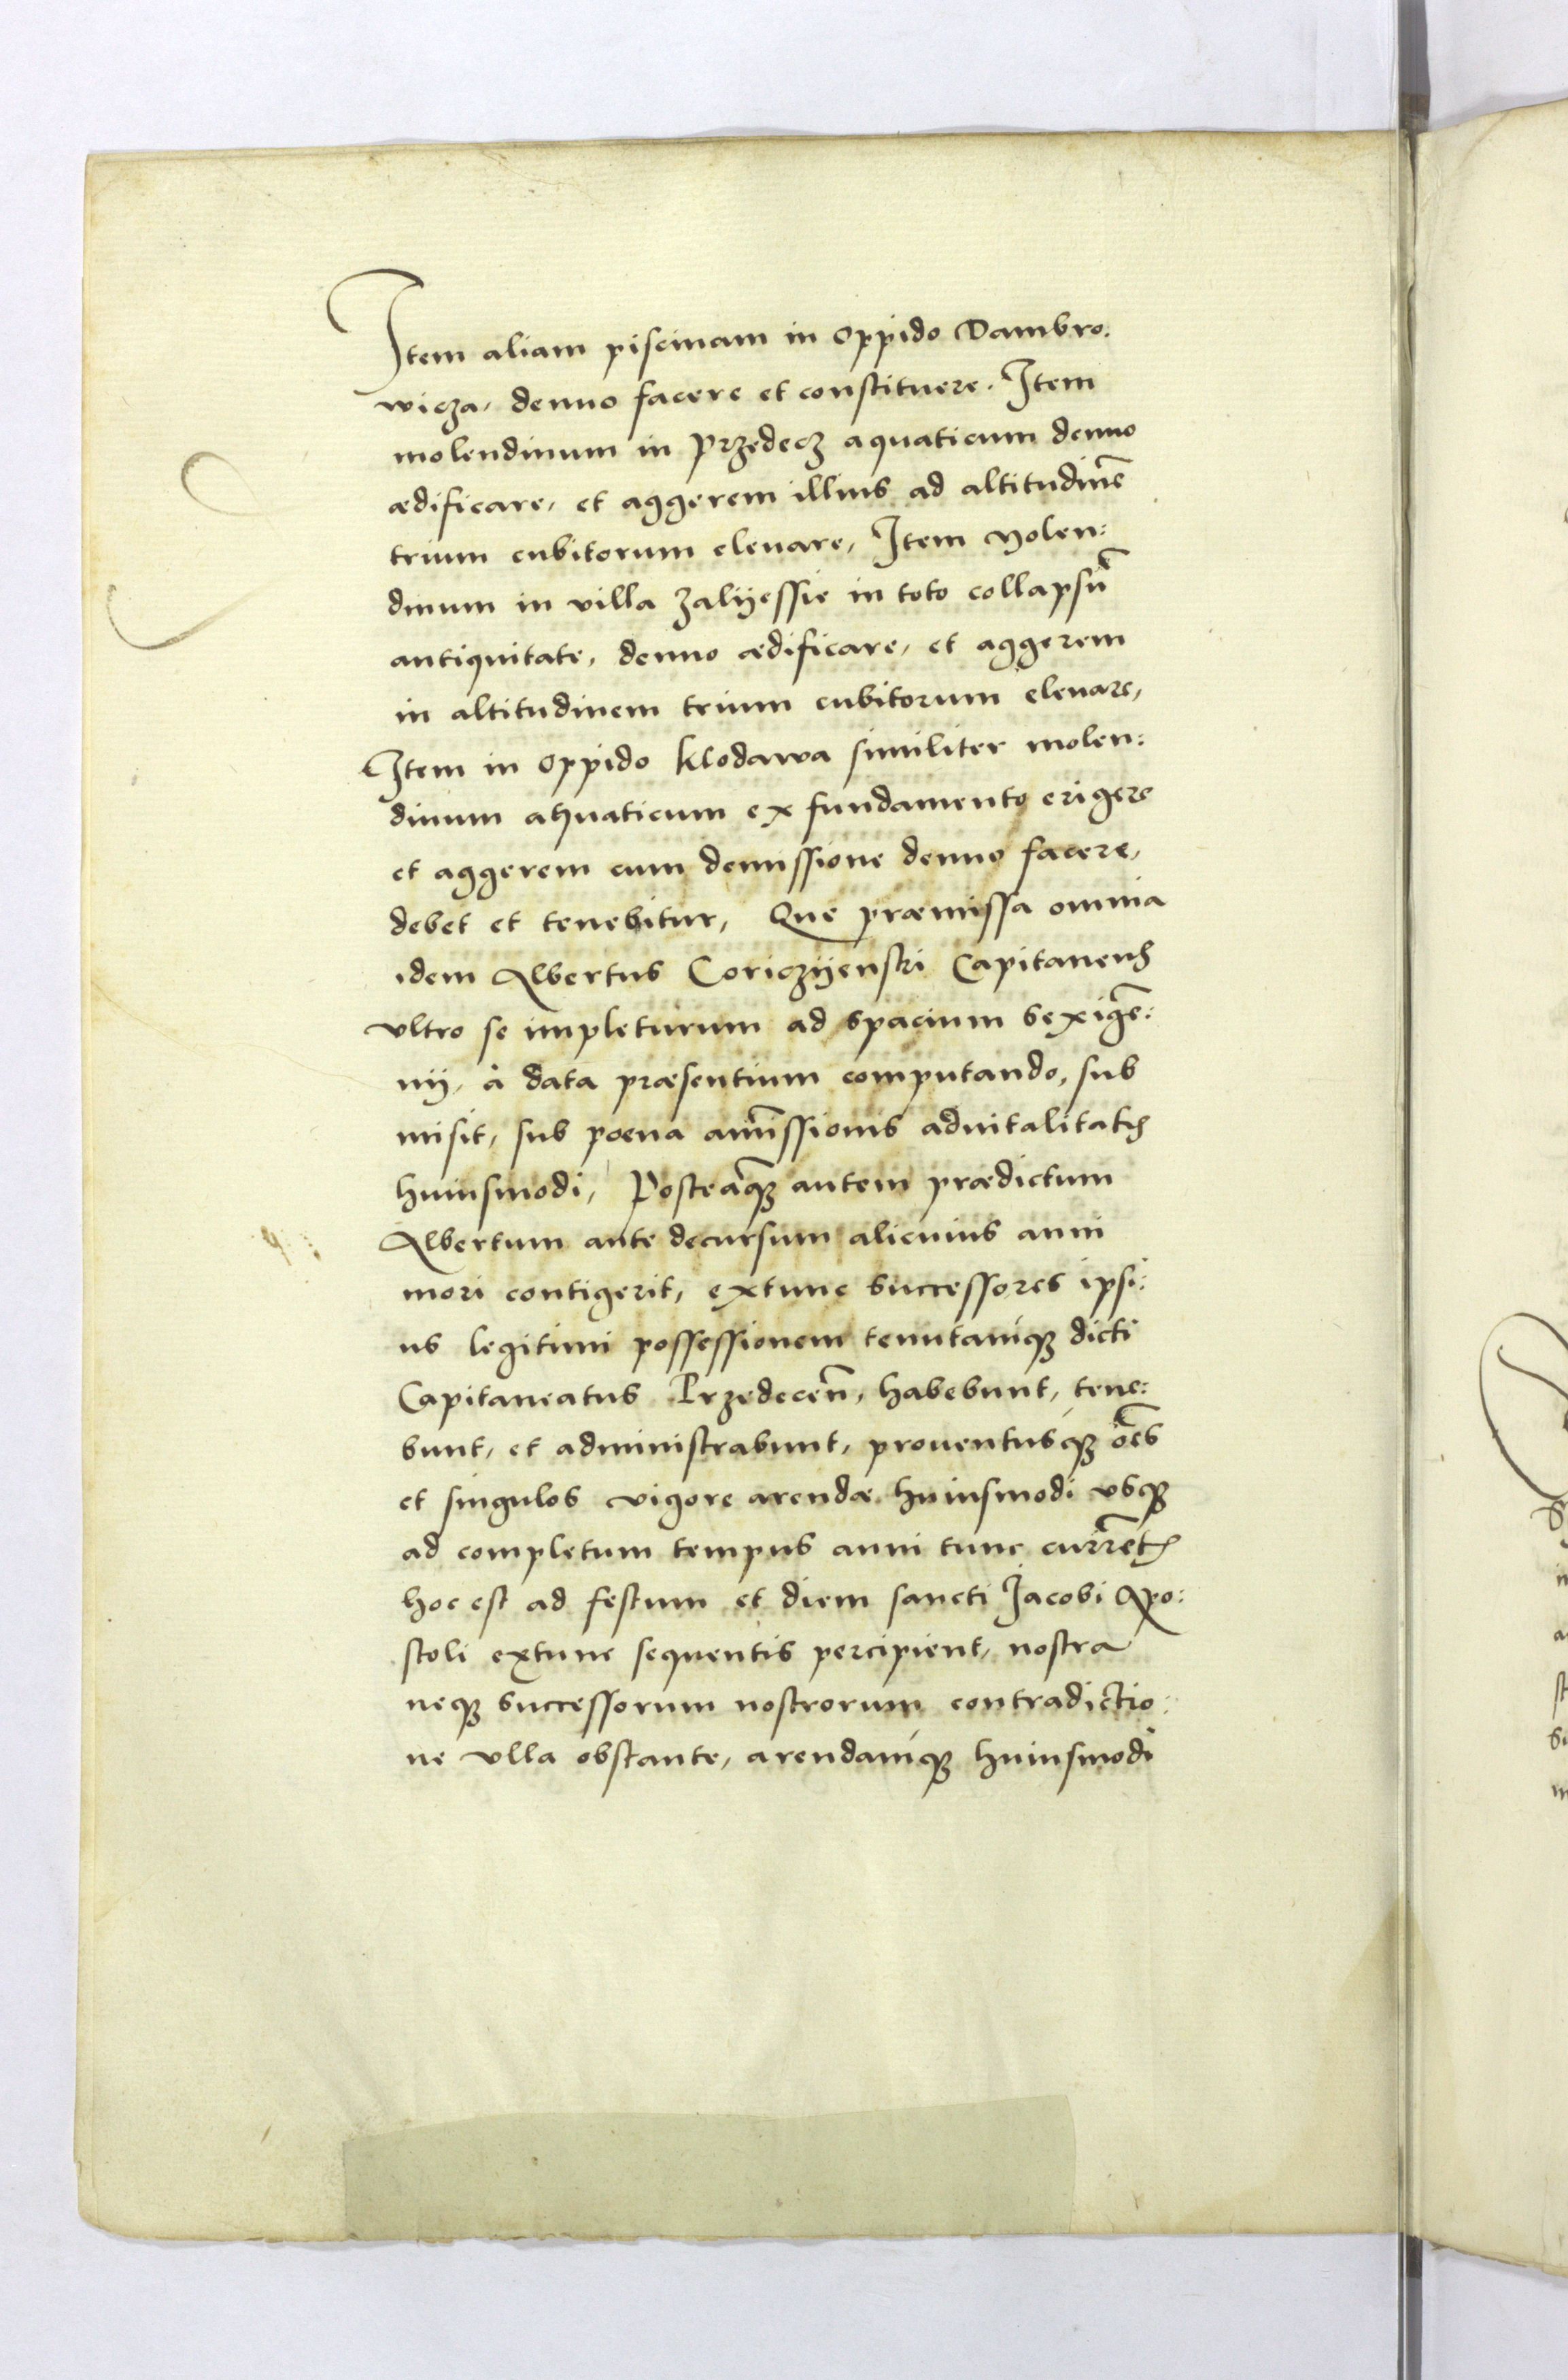 Item aliam piscinam in oppido Dambro:
wicza, denuo facere et constituere. Item
molendinum in Przedecz aquaticum denuo
ædificare, et aggerem illius ad altitudinē
trium cubitorum eleuare, Item Molen:
dinum in villa Zalijessie in toto collapsū
antiquitate, denuo ædificare, et aggerem
in altitudinem trium cubitorum eleuare,
Item in oppido Klodawa similiter molen:
dinum aquaticum ex fundamento erigere
et aggerem cum demissione denuo facere,
debet et tenebitur, Que præmissa omnia
idem Albertus Coriczijenski Capitaneus
vltro se impleturum ad spacium sexigē:
nij, à data præsentium computando, sub
misit, sub poena amissionis aduitalitatis
huiusmodi, Posteaq̃ȝ autem prædictum
Albertum ante decursum alicuius anni
mori contigerit, extunc successores ipsi:
us legitimi possessionem tenutamqȝ dicti
Capitaneatus Przedeceñ, habebunt, tene:
bunt, et administrabunt, prouentusqȝ oēs
et singulos vigore arendæ huiusmodi vsqȝ
ad completum tempus anni tunc currētis
hoc est ad festum et diem sancti Jacobi Apo:
stoli extunc sequentis percipient, nostra
neqȝ successorum nostrorum contradictio:
ne vlla obstante, arendamqȝ huiusmodi